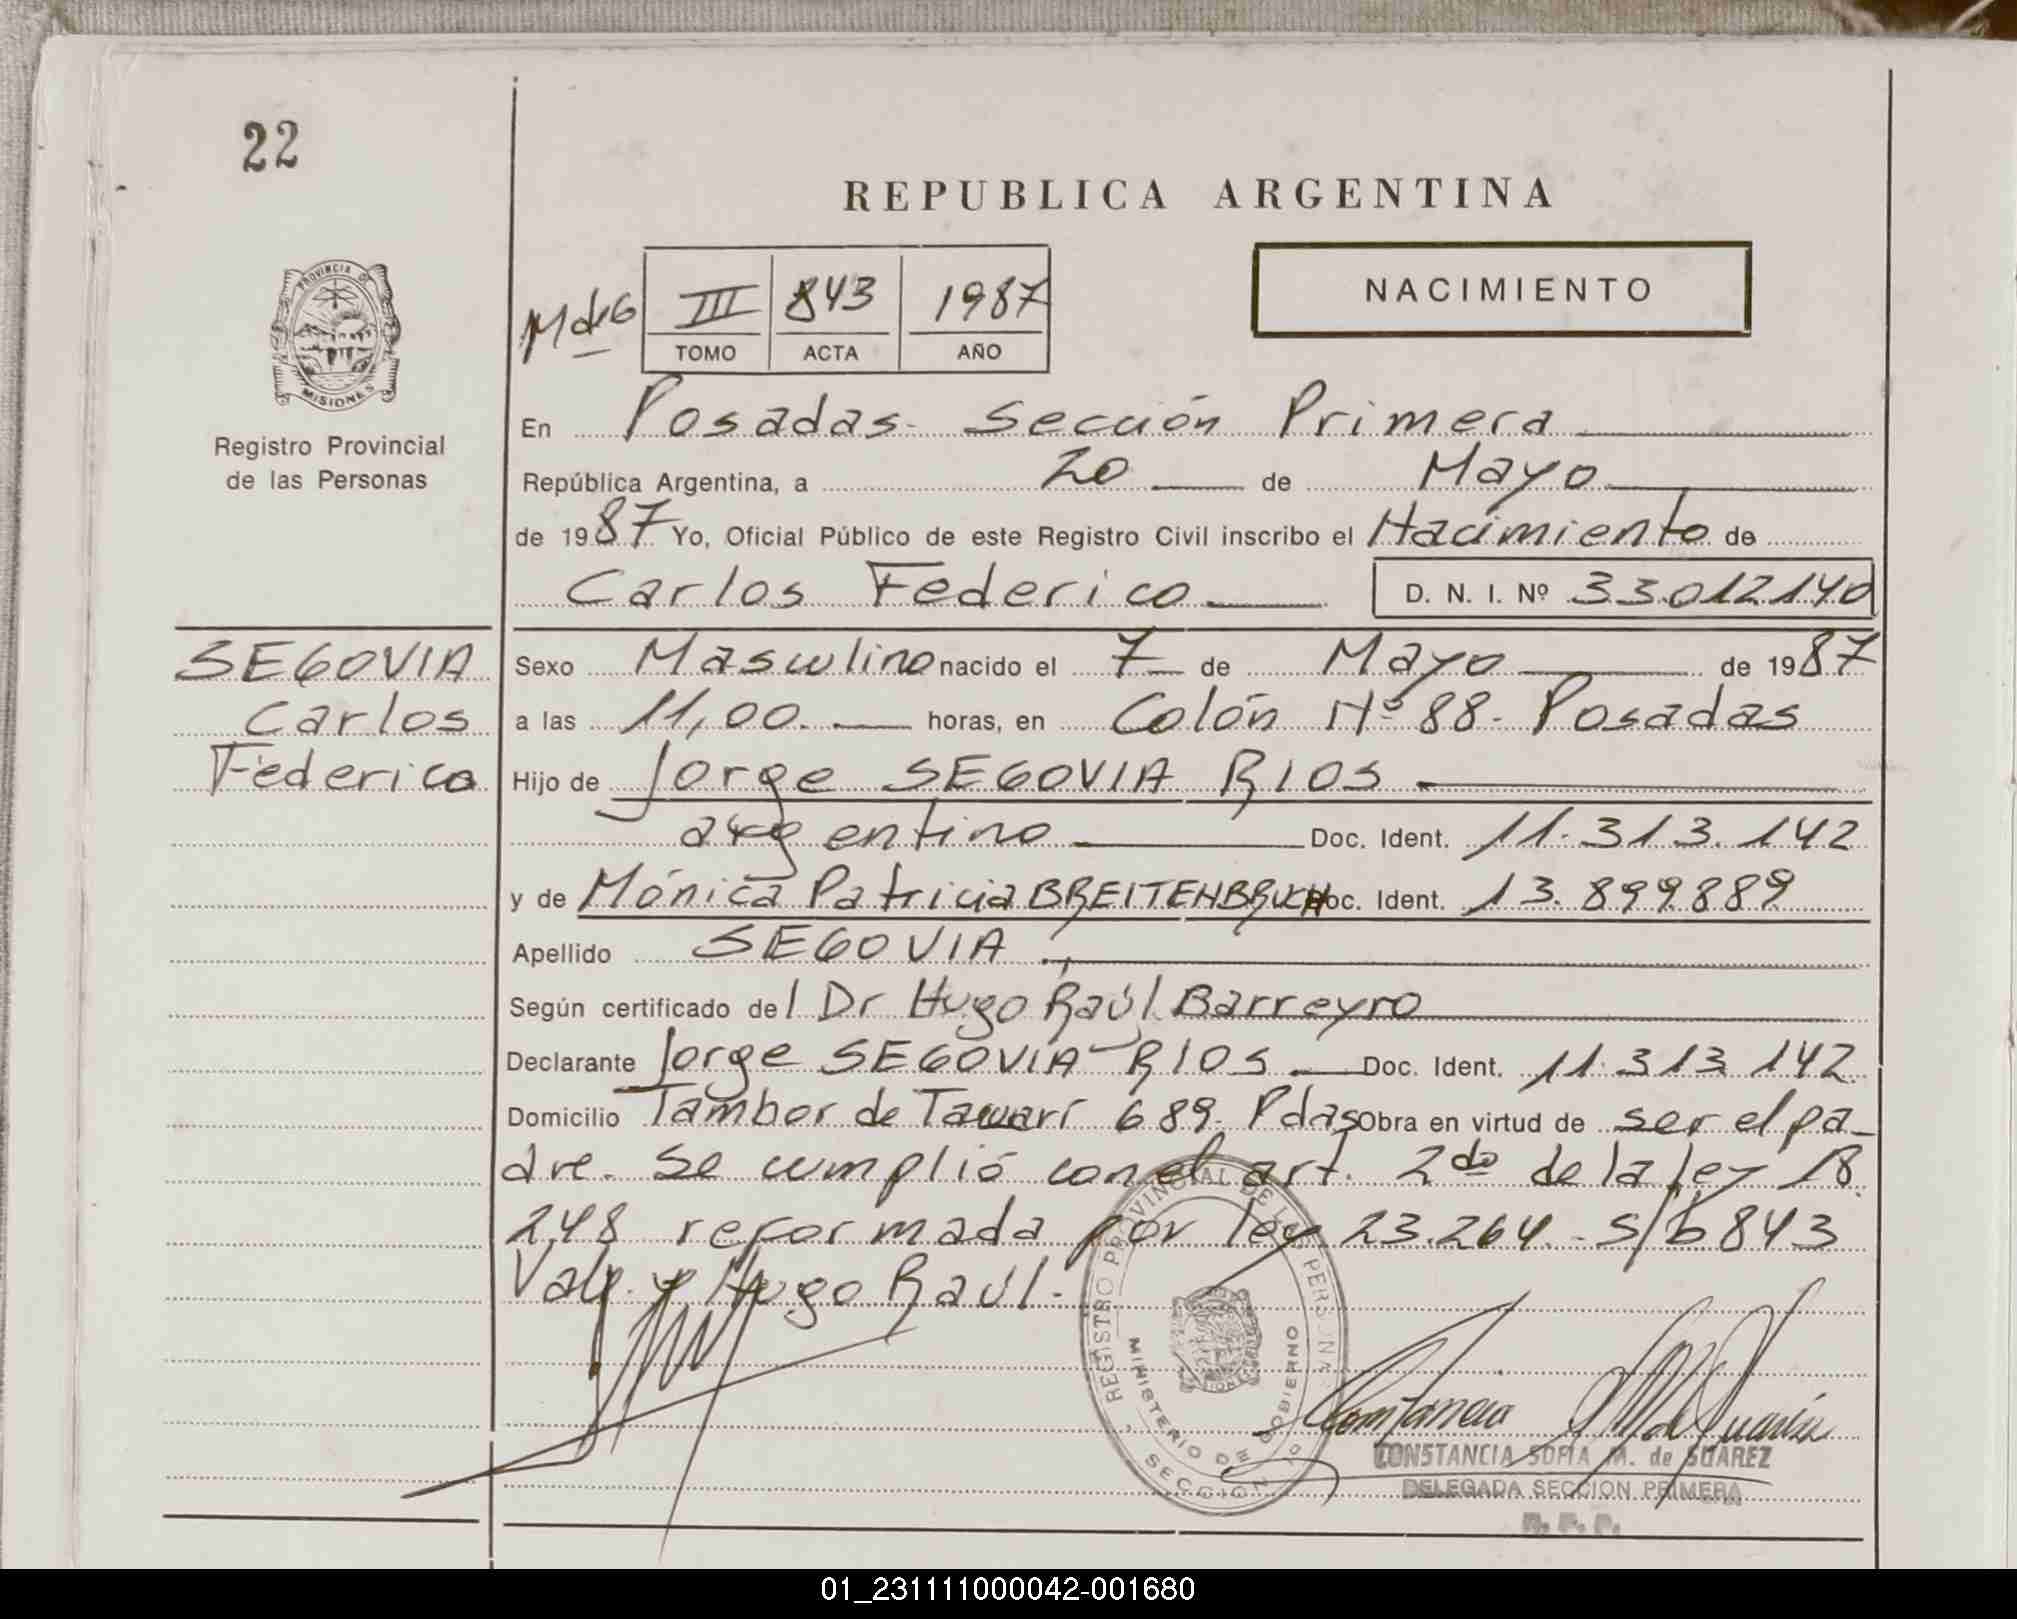 22
REPUBLICA ARGENTINA
NACIMIENTO
III 843 1987
TOMO ACTA AÑO
PROVINCIA DE
MISIONES
Registro Provincial
de las Personas
En Posadas - Sección Primera
República Argentina, a 20 de Mayo
de 1987 Yo, Oficial Público de este Registro Civil inscribo el Nacimiento de
Carlos Federico D. N. I. Nº 33.012.140
SEGOVIA
Carlos
Federico
Sexo Masculino nacido el 7 de Mayo de 1987
a las 11,00. horas, en Colón Nº 88 - Posadas
Hijo de Jorge SEGOVIA RIOS
argentino Doc. Ident. 11.313.142
y de Mónica Patricia BREITENBRUCH Doc. Ident. 13.899889
Apellido SEGOVIA
Según certificado del Dr Hugo Raúl Barreyro
Declarante Jorge SEGOVIA RIOS Doc. Ident. 11.313.142
Domicilio Tambor de Tacuarí 689. Pdas Obra en virtud de ser el pa-
dre. Se cumplió con el art. 2do de la ley 18.
248 reformada por ley 23.264 - s/b 843
Vale y Hugo Raúl.
REGISTRO PROVINCIAL DE LAS PERSONAS
MINISTERIO DE GOBIERNO
SECCION
CONSTANCIA SOFIA M. de SUAREZ
DELEGADA SECCION PRIMERA
R. P. P.
01_231111000042-001680